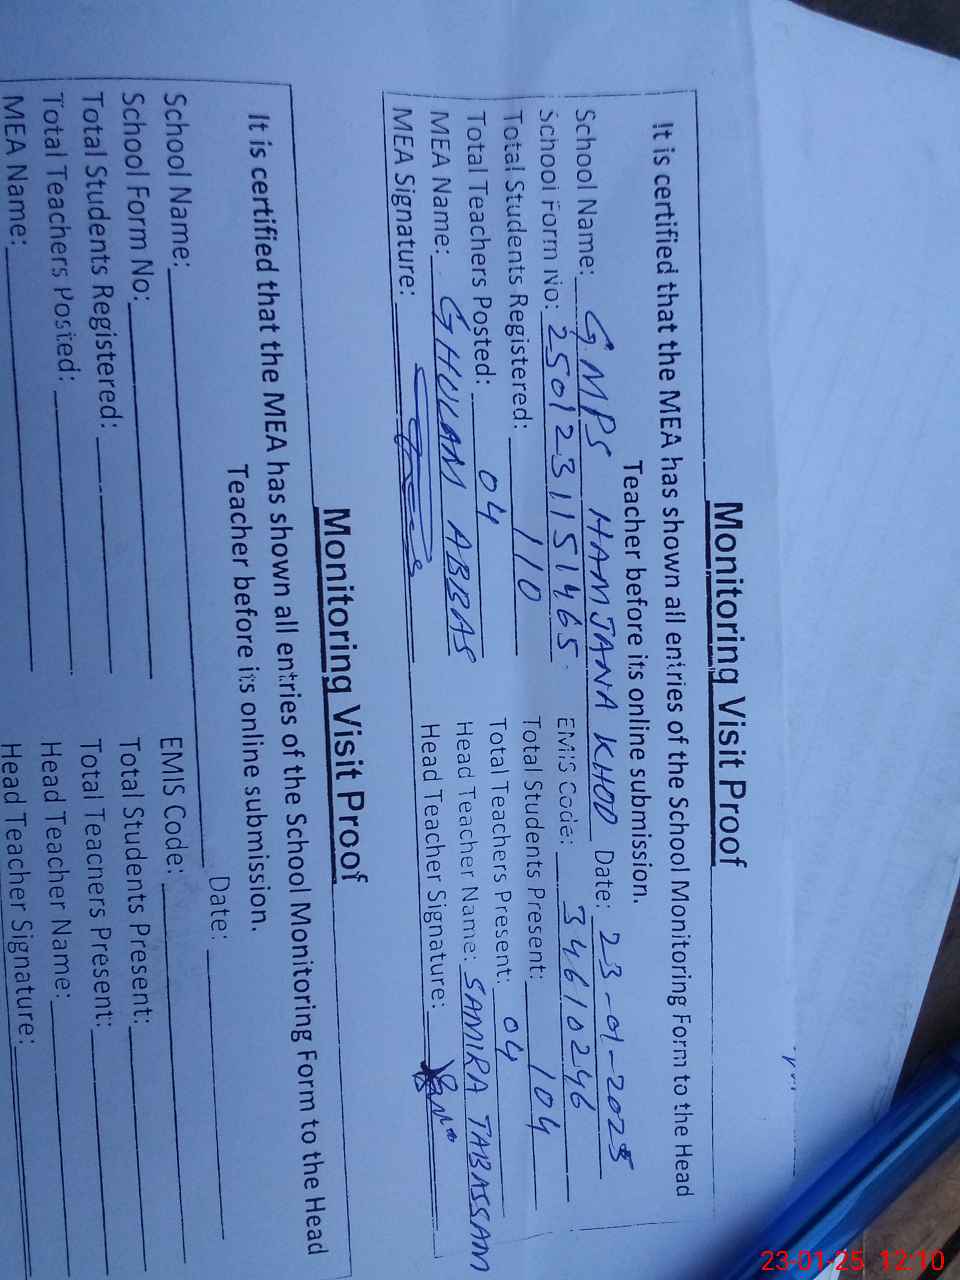 Monitoring Visit Proof
It is certified that the MEA has shown all entries of the School Monitoring Form to the Head
Teacher before its online submission.
School Name: GMPS HAMJANA KHOD Date: 23-01-2025
School Form No: 2501231151465 EMIS Code: 34610246
Total Students Registered: 110 Total Students Present: 104
Total Teachers Posted: 04 Total Teachers Present: 04
MEA Name: GHULAM ABBAS Head Teacher Name: SAMIRA TABASSAM
MEA Signature: Head Teacher Signature:
Monitoring Visit Proof
It is certified that the MEA has shown all entries of the School Monitoring Form to the Head
Teacher before its online submission.
School Name: Date:
School Form No: EMIS Code:
Total Students Registered: Total Students Present:
Total Teachers Posted: Total Teachers Present:
MEA Name: Head Teacher Name:
Head Teacher Signature:
23-01-25 12:10